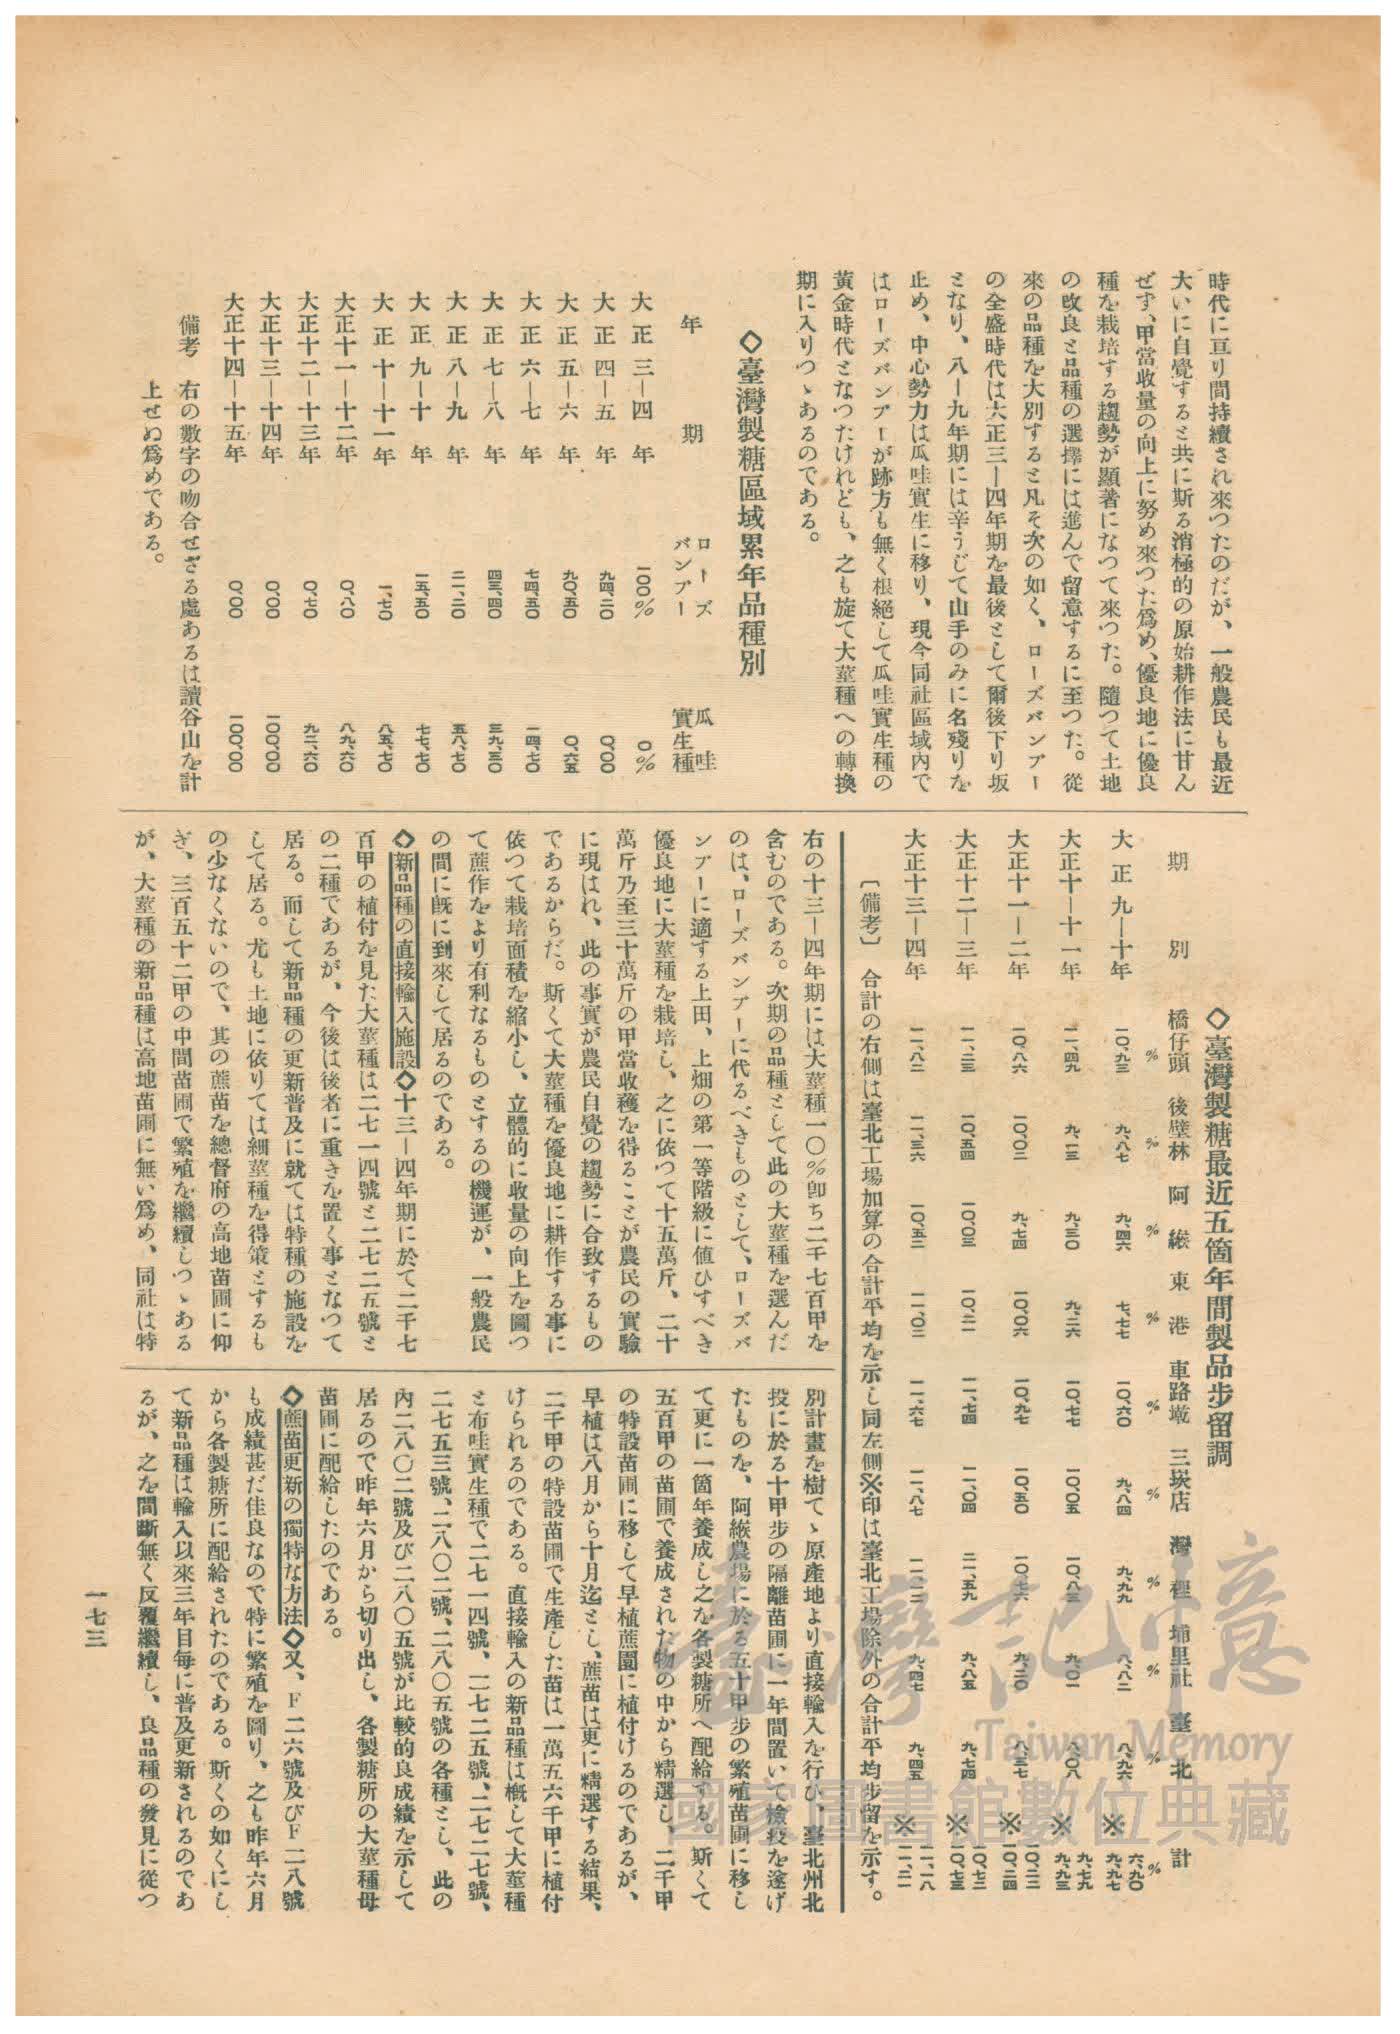 時代に亘り間持續され來つたのだが、一般農民も最近
大いに自覺すると共に斯る消極的の原始耕作法に甘ん
ぜず、甲當收量の向上に努め來つた爲め、優良地に優良
種を栽培する趨勢が顯著になつて來つた。隨つて土地
の改良と品種の選擇には進んで留意するに至つた。從
來の品種を大別すると凡そ次の如く、ローズバンブー
の全盛時代は大正三―四年期を最後として爾後下り坂
となり、八―九年期には辛うじて山手のみに名殘りを
止め、中心勢力は瓜哇實生に移り、現今同社區域内で
はローズバンブーが跡方も無く根絶して瓜哇實生種の
黄金時代となつたけれども、之も旋て大莖種への轉換
期に入りつゝあるのである。
◇臺灣製糖區域累年品種別
年期 ローズバンブー 瓜哇實生種
大正三―四年 一〇〇% 〇%
大正四―五年 九四、二〇 〇、〇〇
大正五―六年 九〇、五〇 〇、六五
大正六―七年 七四、五〇 一四、七〇
大正七―八年 四三、四〇 三九、三〇
大正八―九年 二一、二〇 五八、七〇
大正九―十年 一五、五〇 七七、七〇
大正十―十一年 一、七〇 八五、七〇
大正十一―十二年 〇、八〇 八九、六〇
大正十二―十三年 〇、七〇 九二、六〇
大正十三―十四年 〇、〇〇 一〇〇、〇〇
大正十四―十五年 〇、〇〇 一〇〇、〇〇
備考 右の數字の吻合せざる處あるは讀谷山を計
上せぬ爲めである。
◇臺灣製糖最近五箇年間製品步留調
期別 橋仔頭 後壁林 阿緱 東港 車路墘 三崁店 灣裡 埔里社 臺北 計
% % % % % % % % % %
大正九―十年 一〇、九三 九、八七 九、四六 七、七七 一〇、六〇 九、八四 九、九九 八、八二 八、九六 ※ 六、九〇 九、九七
大正十―十一年 一一、四九 九、一三 九、三〇 九、二六 一〇、七七 一〇、〇五 一〇、八三 九、〇一 八、〇八 ※ 九、七九 九、九三
大正十一―二年 一〇、八六 一〇、〇二 九、七四 一〇、〇六 一〇、九七 一〇、五〇 一〇、七六 九、二〇 八、三七 ※ 一〇、二二 一〇、二四
大正十二―三年 一一、二三 一〇、五四 一〇、〇三 一〇、二一 一一、七四 一一、〇四 一一、五九 九、八五 九、七四 ※ 一〇、七二 一〇、七三
大正十三―四年 一一、八二 一一、三六 一〇、五二 一一、〇二 一一、六七 一一、八七 一一、一二 九、四七 九、四五 ※ 一一、一八 一一、二一
〔備考〕 合計の右側は臺北工場加算の合計平均を示し同左側※印は臺北工場除外の合計平均步留を示す。
右の十三―四年期には大莖種一〇%卽ち二千七百甲を
含むのである。次期の品種として此の大莖種を選んだ
のは、ローズバンブーに代るべきものとして、ローズバ
ンブーに適する上田、上畑の第一等階級に値ひすべき
優良地に大莖種を栽培し、之に依つて十五萬斤、二十
萬斤乃至三十萬斤の甲當收穫を得ることが農民の實驗
に現はれ、此の事實が農民自覺の趨勢に合致するもの
であるからだ。斯くて大莖種を優良地に耕作する事に
依つて栽培面積を縮小し、立體的に收量の向上を圖つ
て蔗作をより有利なるものとするの機運が、一般農民
の間に既に到來して居るのである。
◇新品種の直接輸入施設◇十三―四年期に於て二千七
百甲の植付を見た大莖種は二七一四號と二七二五號と
の二種であるが、今後は後者に重きを置く事となつて
居る。而して新品種の更新普及に就ては特種の施設を
して居る。尤も土地に依りては細莖種を得策とするも
の少なくないので、其の蔗苗を總督府の高地苗圃に仰
ぎ、三百五十二甲の中間苗圃で繁殖を繼續しつゝある
が、大莖種の新品種は高地苗圃に無い爲め、同社は特
別計畫を樹てゝ原產地より直接輸入を行ひ、臺北州北
投に於る十甲步の隔離苗圃に一年間置いて檢疫を遂げ
たものを、阿緱農場に於る五十甲步の繁殖苗圃に移し
て更に一箇年養成し之を各製糖所へ配給する。斯くて
五百甲の苗圃で養成された物の中から精選し、二千甲
の特設苗圃に移して早植蔗園に植付けるのであるが、
早植は八月から十月迄とし、蔗苗は更に精選する結果、
二千甲の特設苗圃で生產した苗は一萬五六千甲に植付
けられるのである。直接輸入の新品種は槪して大莖種
と布哇實生種で二七一四號、二七二五號、二七二七號、
二七五三號、二八〇二號、二八〇五號の各種とし、此の
內二八〇二號及び二八〇五號が比較的良成績を示して
居るので昨年六月から切り出し、各製糖所の大莖種母
苗圃に配給したのである。
◇蔗苗更新の獨特な方法◇又、F二六號及びF二八號
も成績甚だ佳良なので特に繁殖を圖り、之も昨年六月
から各製糖所に配給されたのである。斯くの如くにし
て新品種は輸入以來三年目每に普及更新されるのであ
るが、之を間斷無く反覆繼續し、良品種の發見に從つ
一七三
臺灣記憶
Taiwan Memory
國家圖書館數位典藏